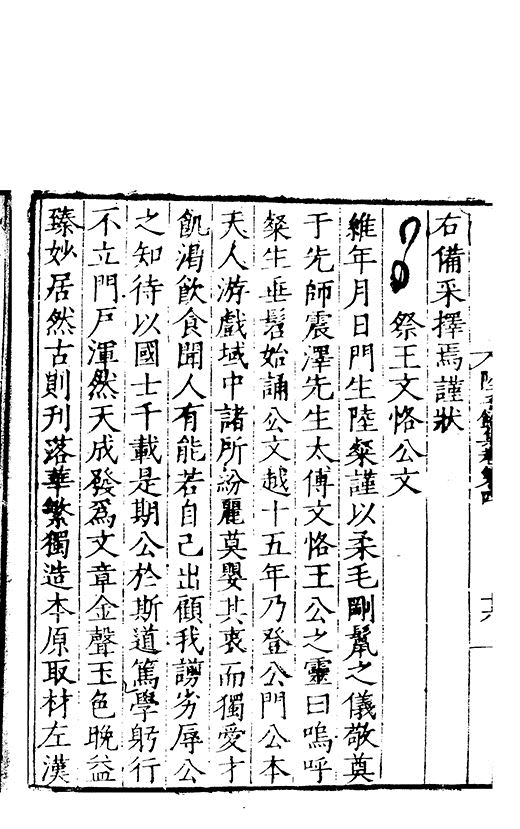 右備采擇焉謹狀
祭王文恪公文
維年月日門生陸粲謹以柔毛剛鬣之儀敬奠
于先師震澤先生太傅文恪王公之靈曰嗚呼
粲生垂髫始誦公文越十五年乃登公門公本
天人游戲域中諸所紛麗莫嬰其衷而獨愛才
飢渴飲食聞人有能若自己出顧我謭劣辱公
之知待以國士千載是期公於斯道篤學躬行
不立門戶渾然天成發爲文章金聲玉色晚益
臻妙居然古則刊落華繁獨造本原取材左漢